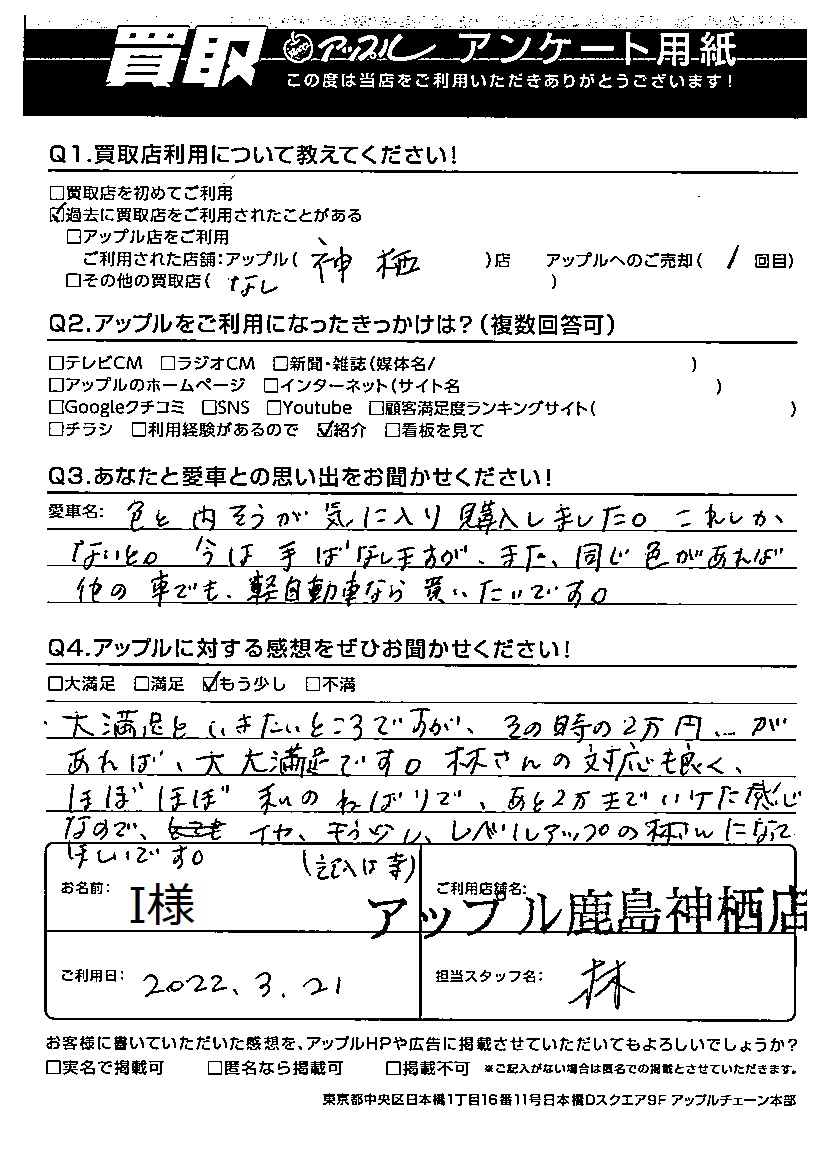 買取 アップル アンケート用紙
この度は当店をご利用いただきありがとうございます!
Q1.買取店利用について教えてください!
□買取店を初めてご利用
☑過去に買取店をご利用されたことがある
□アップル店をご利用
ご利用された店舗:アップル( 神栖 )店 アップルへのご売却( 1 回目)
□その他の買取店( なし )
Q2.アップルをご利用になったきっかけは?(複数回答可)
□テレビCM □ラジオCM □新聞・雑誌(媒体名/ )
□アップルのホームページ □インターネット(サイト名 )
□Googleクチコミ □SNS □Youtube □顧客満足度ランキングサイト( )
□チラシ □利用経験があるので ☑紹介 □看板を見て
Q3.あなたと愛車との思い出をお聞かせください!
愛車名: 色と内そうが気に入り購入しました。これしか
ないと。今は手ばなしますが、また、同じ色があれば
他の車でも、軽自動車なら買いたいです。
Q4.アップルに対する感想をぜひお聞かせください!
□大満足 □満足 ☑もう少し □不満
大満足といきたいところですが、その時の2万円、、が
あれば、大大満足です。林さんの対応も良く、
ほぼほぼ私のねばりで、あと2万までいけた感じ
なので、イヤ、もう少し、レベルアップの林さんになって
ほしいです。 (記入は妻)
お名前: I様 ご利用店舗名: アップル鹿島神栖店
ご利用日: 2022.3.21 担当スタッフ名: 林
お客様に書いていただいた感想を、アップルHPや広告に掲載させていただいてもよろしいでしょうか?
□実名で掲載可 □匿名なら掲載可 □掲載不可 ※ご記入がない場合は匿名での掲載とさせていただきます。
東京都中央区日本橋1丁目16番11号日本橋Dスクエア9F アップルチェーン本部